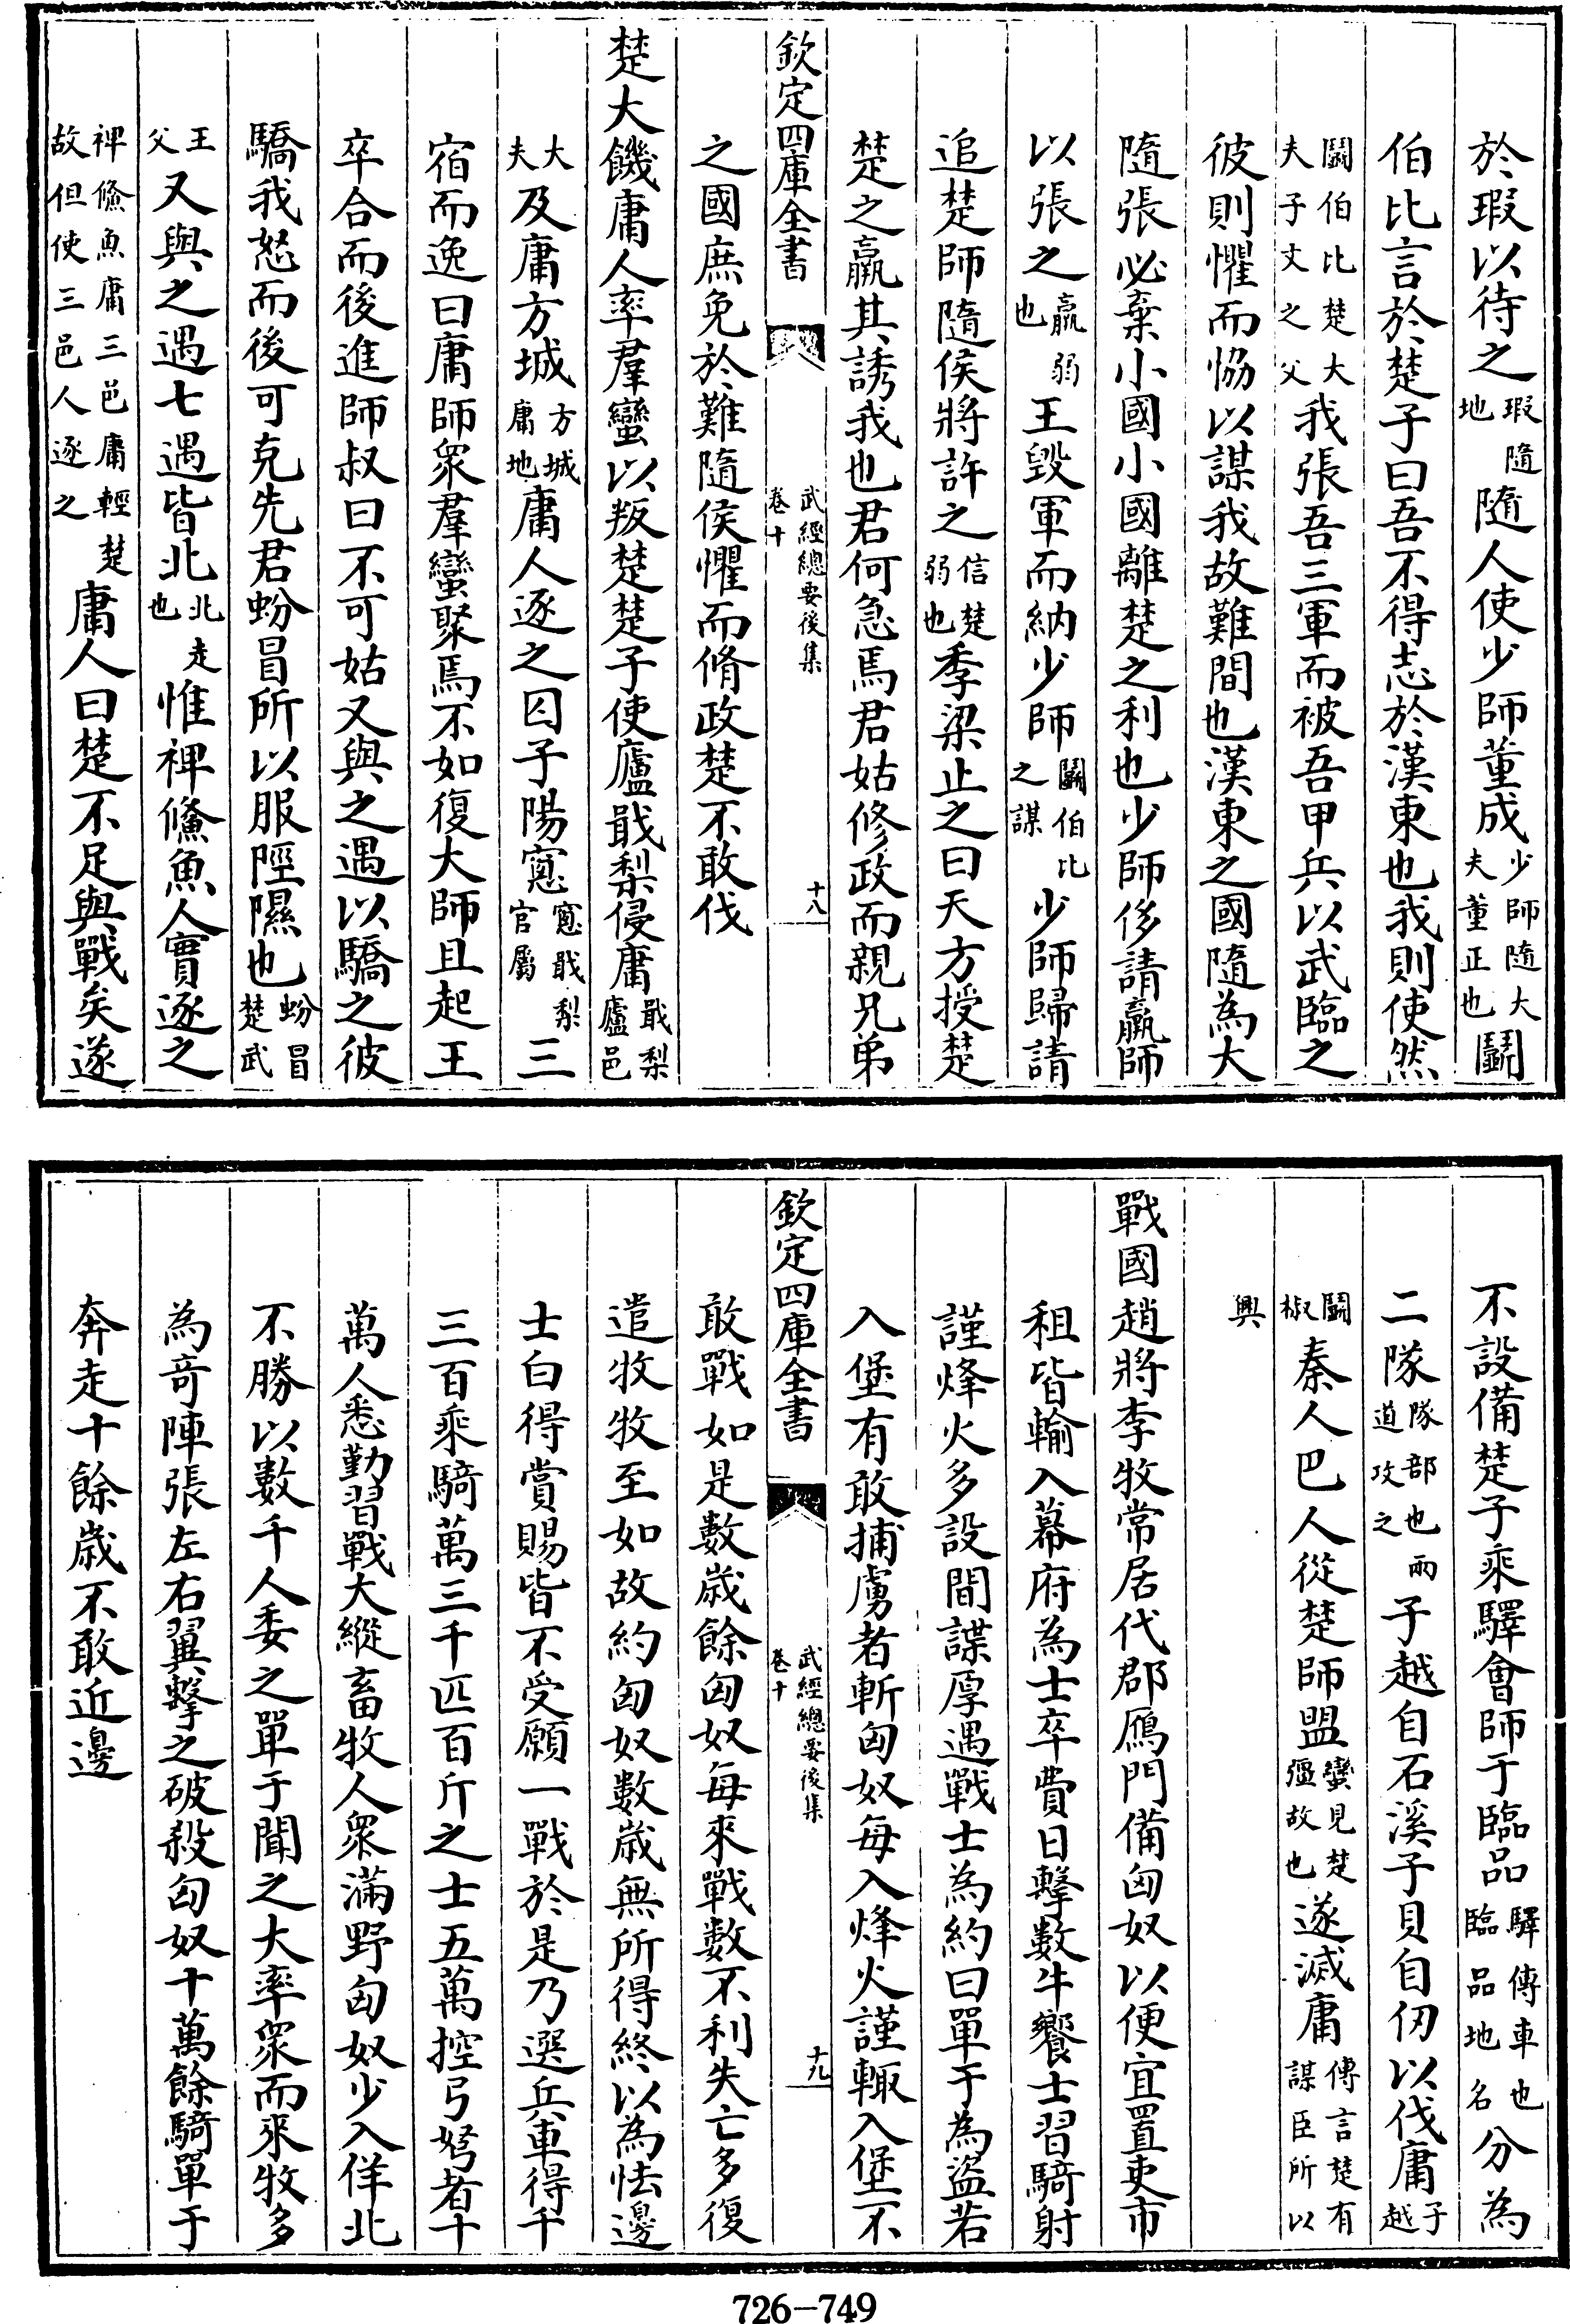 於瑕以待之瑕隨地隨人使少師董成少師隨大夫董正也鬭
伯比言於楚子曰吾不得志於漢東也我則使然
鬭伯比楚大夫子丈之父我張吾三軍而被吾甲兵以武臨之
彼則懼而恊以謀我故難間也漢東之國隨為大
隨張必棄小國小國離楚之利也少師侈請羸師
以張之羸弱也王毀軍而納少師鬭伯比之謀少師歸請
追楚師隨侯將許之信楚弱也季梁止之曰天方授楚
楚之羸其誘我也君何急焉君姑修政而親兄弟
欽定四庫全書
武經總要後集
卷十
十八
之國庶免於難隨侯懼而脩政楚不敢伐
楚大饑庸人率羣蠻以叛楚楚子使廬戢梨侵庸戢梨廬邑
大夫及庸方城方城庸地庸人逐之囚子陽窻窻戢梨官屬三
宿而逸曰庸師衆羣蠻聚焉不如復大師且起王
卒合而後進師叔曰不可姑又與之遇以驕之彼
驕我怒而後可克先君蚡冒所以服陘隰也蚡冒楚武
王父又與之遇七遇皆北北走也惟裨鯈魚人實逐之
裨鯈魚庸三邑庸輕楚故但使三邑人逐之庸人曰楚不足與戰矣遂
不設備楚子乘驛會師于臨品驛傳車也臨品地名分為
二隊隊部也兩道攻之子越自石溪子貝自仞以伐庸子越
鬭椒秦人巴人從楚師盟蠻見楚彊故也遂滅庸傳言楚有謀臣所以
興
戰國趙將李牧常居代郡鴈門備匈奴以便宜置吏市
租皆輸入幕府為士卒費日擊數牛饗士習騎射
謹烽火多設間諜厚遇戰士為約曰單于為盜若
入堡有敢捕虜者斬匈奴每入烽火謹輙入堡不
欽定四庫全書
武經總要後集
卷十
十九
敢戰如是數歲餘匈奴每來戰數不利失亡多復
遣牧牧至如故約匈奴數歲無所得終以為怯邊
士白得賞賜皆不受願一戰於是乃選兵車得千
三百乘騎萬三千匹百斤之士五萬控弓弩者十
萬人悉勤習戰大縱畜牧人衆滿野匈奴少入佯北
不勝以數千人委之單于聞之大率衆而來牧多
為竒陣張左右翼擊之破殺匈奴十萬餘騎單于
奔走十餘歲不敢近邊
726-749